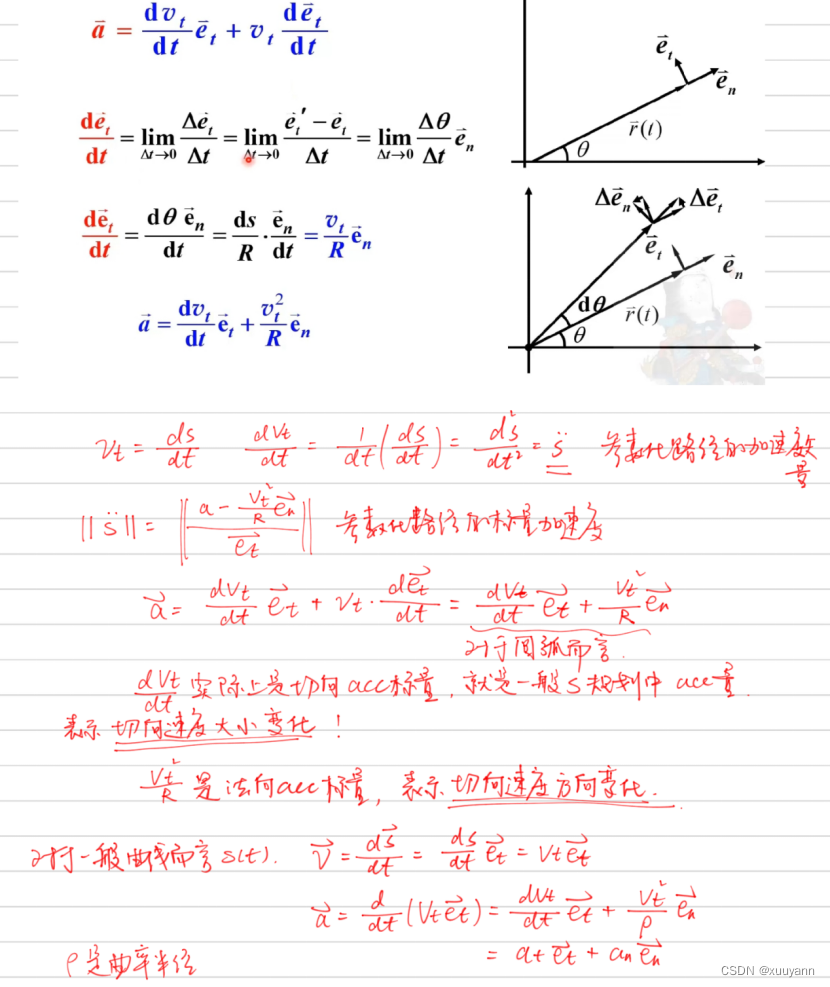 a⃗ = dv_t/dt e⃗_t + v_t de⃗_t/dt
e⃗_t
e⃗_n
r⃗(t)
θ
de⃗_t/dt = lim_{Δt→0} Δe⃗_t/Δt = lim_{Δt→0} (e⃗_t′ − e⃗_t)/Δt = lim_{Δt→0} Δθ/Δt e⃗_n
Δe⃗_n
Δe⃗_t
de⃗_t/dt = dθ e⃗_n/dt = ds/R · e⃗_n/dt = v_t/R e⃗_n
e⃗_t
e⃗_n
dθ
r⃗(t)
θ
a⃗ = dv_t/dt e⃗_t + v_t²/R e⃗_n
v_t = ds/dt dv_t/dt = 1/dt(ds/dt) = d²s/dt² = s̈ 参数化路径的加速度矢量
||s̈|| = ||(a − v_t²/R e⃗_n)/e⃗_t|| 参数化路径的标量加速度
a⃗ = dv_t/dt e⃗_t + v_t · de⃗_t/dt = dv_t/dt e⃗_t + v_t²/R e⃗_n
对于圆弧而言
dv_t/dt 实际上是切向acc标量，就是一般S规划中acc量.
表示 切向速度大小变化！
v_t²/R 是法向acc标量，表示 切向速度方向变化.
对于一般曲线而言s(t). v⃗ = ds⃗/dt = ds/dt e⃗_t = v_t e⃗_t
a⃗ = d/dt(v_t e⃗_t) = dv_t/dt e⃗_t + v_t²/ρ e⃗_n
= a_t e⃗_t + a_n e⃗_n
ρ是曲率半径
CSDN @xuuyann